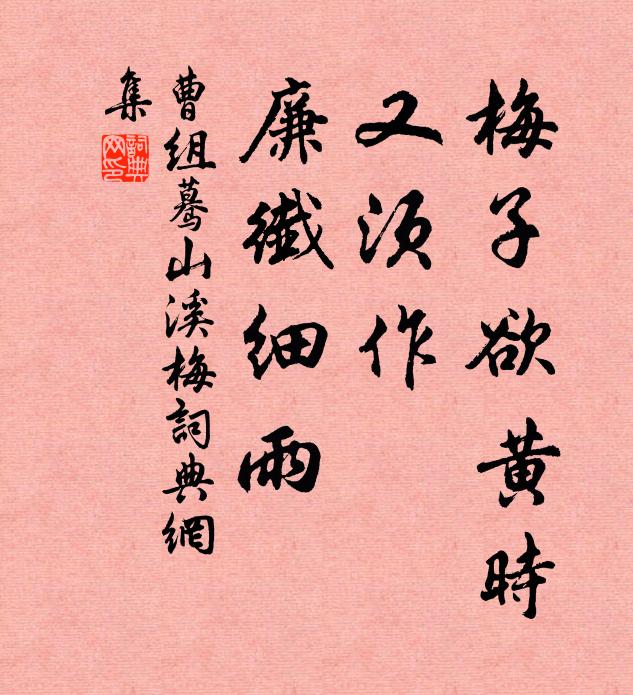 梅子欲黄時
又須作
廉纖細雨
曹組驀山溪梅詞典網
集
詞典
網印